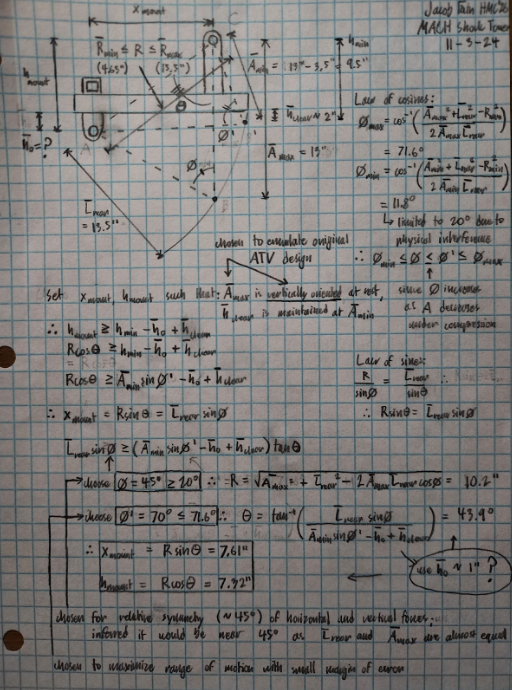 Jacob Fain HMC'26
MACH Shock Tower
11-3-24
x_mount
C
R̄_min ≤ R ≤ R̄_max
(4.65") (13.5")
Ā_min = 13" - 3.5" = 9.5"
h_min
h_mount
θ
h̄_clear ≈ 2"
h̄_0 = ?
A
Ø'
Ø
B
Ā_max = 13"
L̄_rear
= 13.5"
Law of cosines:
Ø_max = cos⁻¹((Ā_max² + L̄_rear² - R_max²) / (2Ā_max L̄_rear))
= 71.6°
Ø_min = cos⁻¹((Ā_min² + L̄_rear² - R_min²) / (2Ā_min L̄_rear))
= 11.8°
↳ limited to 20° due to
physical interference
∴ Ø_min ≤ Ø < Ø' ≤ Ø_max
↑
since Ø increases
as A decreases
under compression
chosen to emulate original
ATV design
Set x_mount, h_mount such that: Ā_max is vertically oriented at rest,
h̄_clear is maintained at Ā_min
∴ h_mount ≥ h_min - h̄_0 + h̄_clear
Rcosθ ≥ h_min - h̄_0 + h̄_clear
Rcosθ ≥ Ā_min sinØ' - h̄_0 + h̄_clear
Law of sines:
R/sinØ = L̄_rear/sinθ
∴ Rsinθ = L̄_rear sinØ
∴ x_mount = Rsinθ = L̄_rear sinØ
L̄_rear sinØ ≥ (Ā_min sinØ' - h̄_0 + h̄_clear) tanθ
choose Ø = 45° ≥ 20° ∴ R = √(Ā_max² + L̄_rear² - 2Ā_max L̄_rear cosØ) = 10.2"
choose Ø' = 70° ≤ 71.6° ∴ θ = tan⁻¹(L̄_rear sinØ / (Ā_min sinØ' - h̄_0 + h̄_clear)) = 43.9°
∴ x_mount = Rsinθ = 7.61"
h_mount = Rcosθ = 7.32"
use h̄_0 ≈ 1" ?
chosen for relative symmetry (≈ 45°) of horizontal and vertical forces;
inferred it would be near 45° as L̄_rear and Ā_max are almost equal
chosen to maximize range of motion with small margin of error